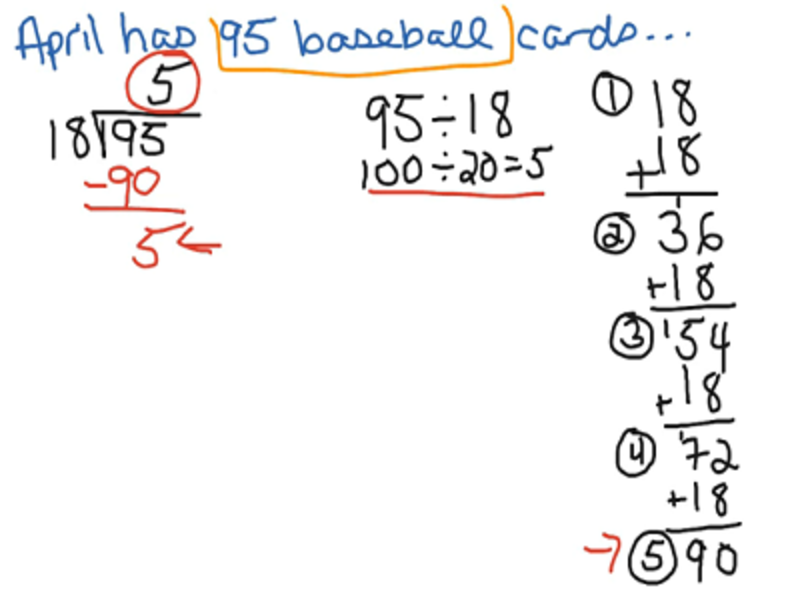 April has 95 baseball cards...
5
18 95
-90
5 ←
95÷18
100÷20=5
① 18
+18
1
② 36
+18
③ 154
+18
④ '72
+18
→ ⑤ 90